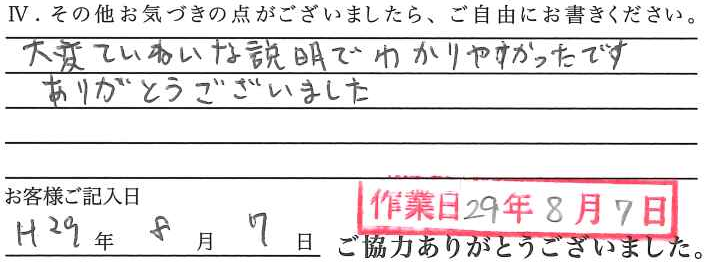 Ⅳ．その他お気づきの点がございましたら、ご自由にお書きください。
大変ていねいな説明でわかりやすかったです
ありがとうございました
お客様ご記入日
H29年 8月 7日
作業日29年8月7日
ご協力ありがとうございました。